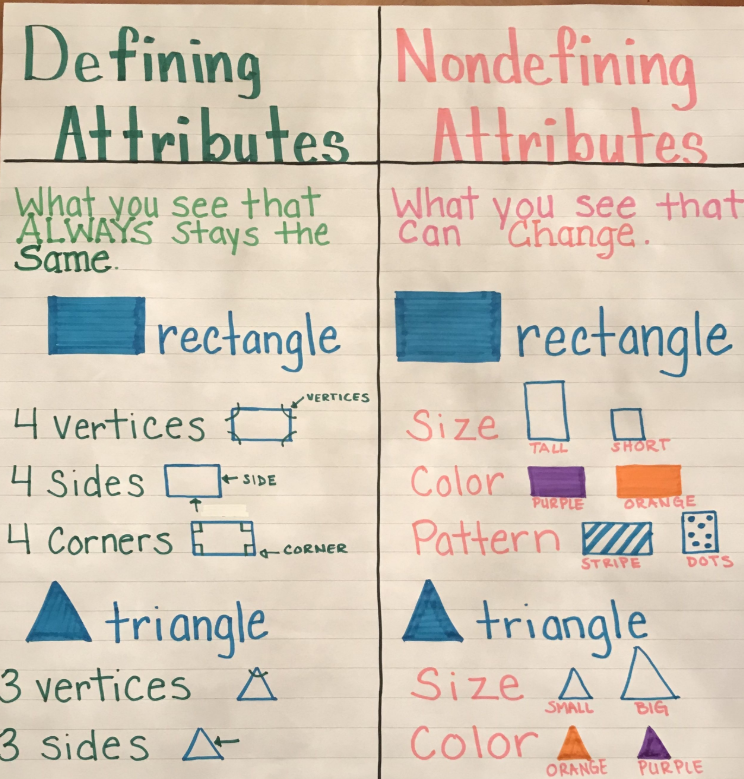 Defining
Attributes
What you see that
ALWAYS stays the
Same.
rectangle
4 vertices
VERTICES
4 Sides
SIDE
4 Corners
CORNER
triangle
3 vertices
3 sides
Nondefining
Attributes
What you see that
can Change.
rectangle
Size
TALL SHORT
Color
PURPLE ORANGE
Pattern
STRIPE DOTS
triangle
Size
SMALL BIG
Color
ORANGE PURPLE